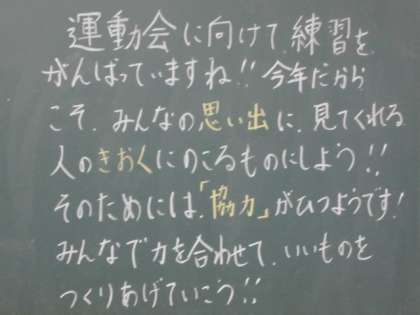 運動会に向けて練習を
がんばっていますね!!今年だから
こそ、みんなの思い出に、見てくれる
人のきおくにのこるものにしよう!!
そのためには、「協力」がひつようです!
みんなで力を合わせて、いいものを
つくりあげていこう!!